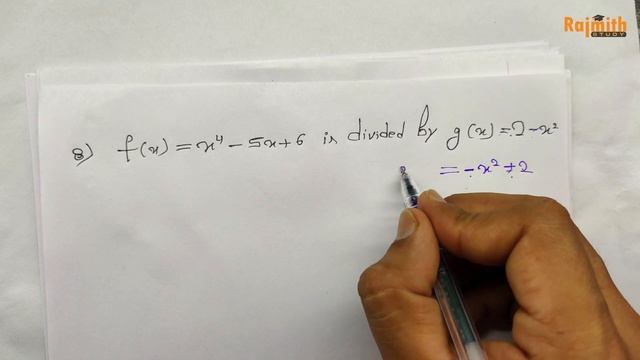 Rajmith
STUDY
8) f(x) = x⁴ - 5x + 6 is divided by g(x) = 2 - x²
= -x² + 2